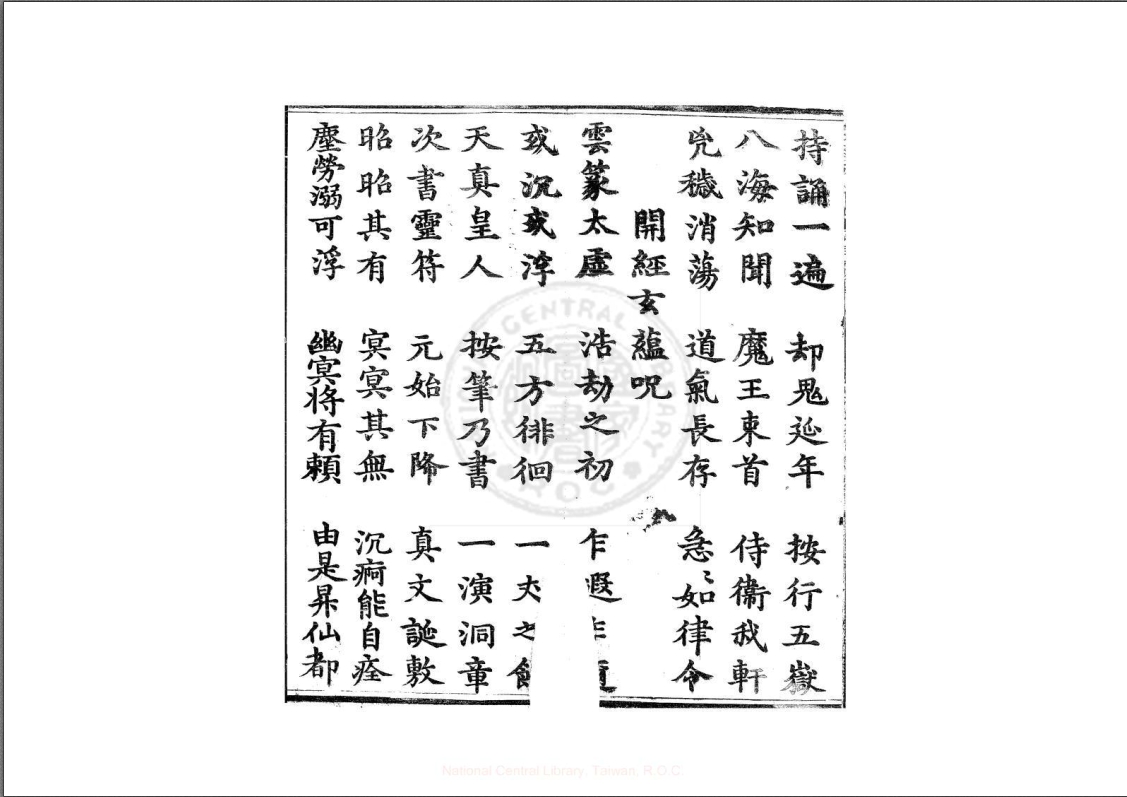 持誦一遍 却鬼延年 按行五嶽
八海知聞 魔王束首 侍衛我軒
兇穢消蕩 道氣長存 急〻如律令
開經玄蘊呪
雲篆太虛 浩劫之初 乍遐
或沉或浮 五方徘徊 一丈之
天真皇人 按筆乃書 一演洞章
次書靈符 元始下降 真文誕敷
昭昭其有 冥冥其無 沉痾能自痊
塵勞溺可浮 幽冥将有頼 由是昇仙都
CENTRAL LIBRARY
ROC
National Central Library, Taiwan, R.O.C.